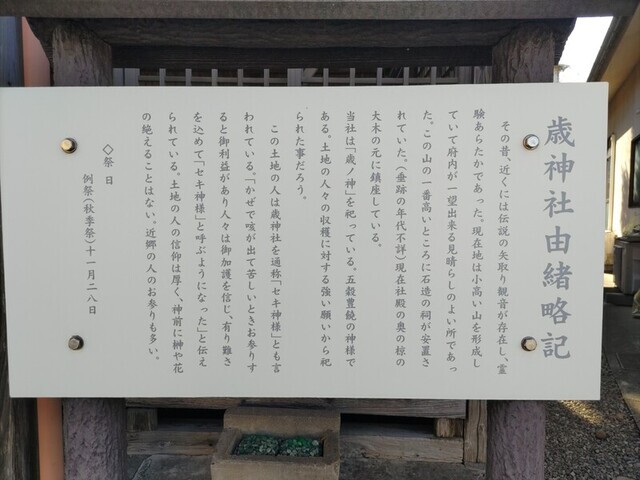 歳神社由緒略記
その昔、近くには伝説の矢取り観音が存在し、霊
験あらたかであった。現在地は小高い山を形成し
ていて府内が一望出来る見晴らしのよい所であっ
た。この山の一番高いところに石造の祠が安置さ
れていた。(垂跡の年代不詳)現在社殿の奥の椋の
大木の元に鎮座している。
当社は「歳ノ神」を祀っている。五穀豊饒の神様で
ある。土地の人々の収穫に対する強い願いから祀
られた事だろう。
この土地の人は歳神社を通称「セキ神様」とも言
われている。「かぜで咳が出て苦しいときお参りす
ると御利益があり人々は御加護を信じ、有り難さ
を込めて「セキ神様」と呼ぶようになった」と伝え
られている。土地の人の信仰は厚く、神前に榊や花
の絶えることはない。近郷の人のお参りも多い。
◇祭日
例祭(秋季祭)十一月二八日